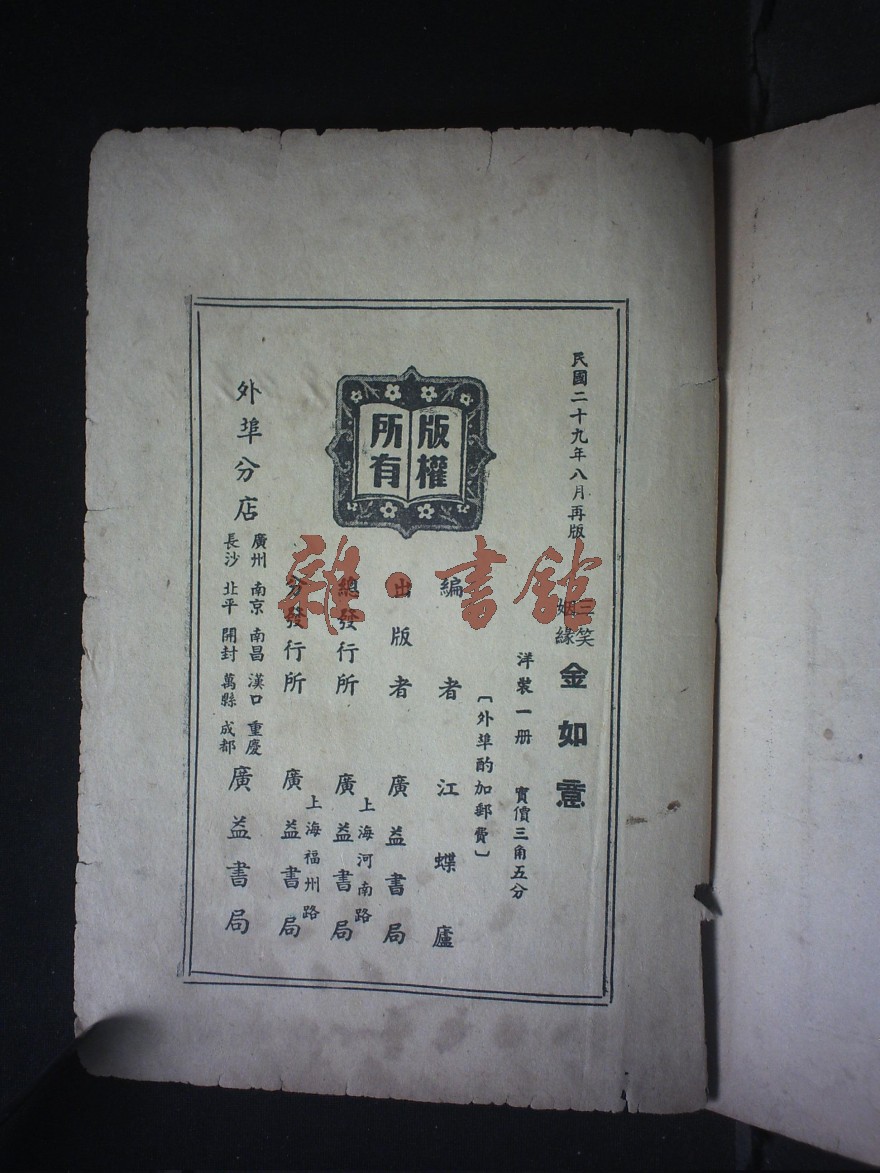 民國二十九年八月再版
三笑
姻緣
金如意
洋裝一册 實價三角五分
〔外埠酌加郵費〕
版權
所有
編者 江蝶廬
出版者 廣益書局
上海河南路
總發行所 廣益書局
上海福州路
分發行所 廣益書局
外埠分店
廣州 南京 南昌 漢口 重慶
長沙 北平 開封 萬縣 成都
廣益書局
雜·書館